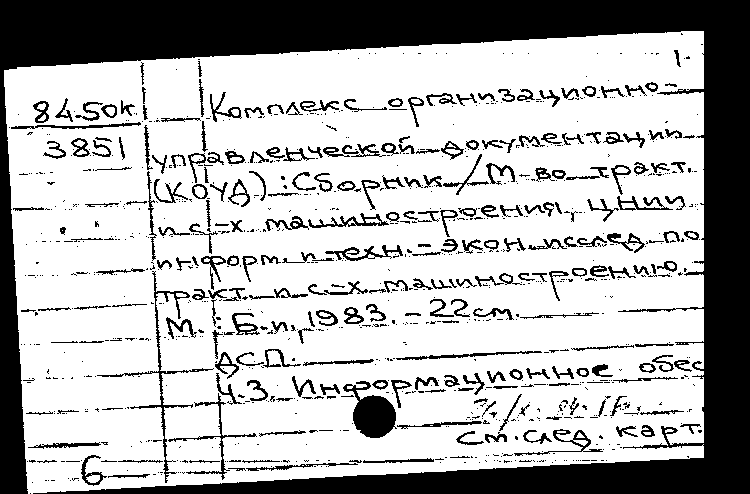 1.
84-50к Комплекс организационно-
3851 управленческой документации
(КОУД) : Сборник / М-во тракт.
и с.-х. машиностроения, ЦНИИ
информ. и техн.-экон. исслед. по
тракт. и с.-х. машиностроению. -
М. : Б.и., 1983. - 22 см.
ДСП.
Ч.3. Информационное обес
См. след. карт.
6